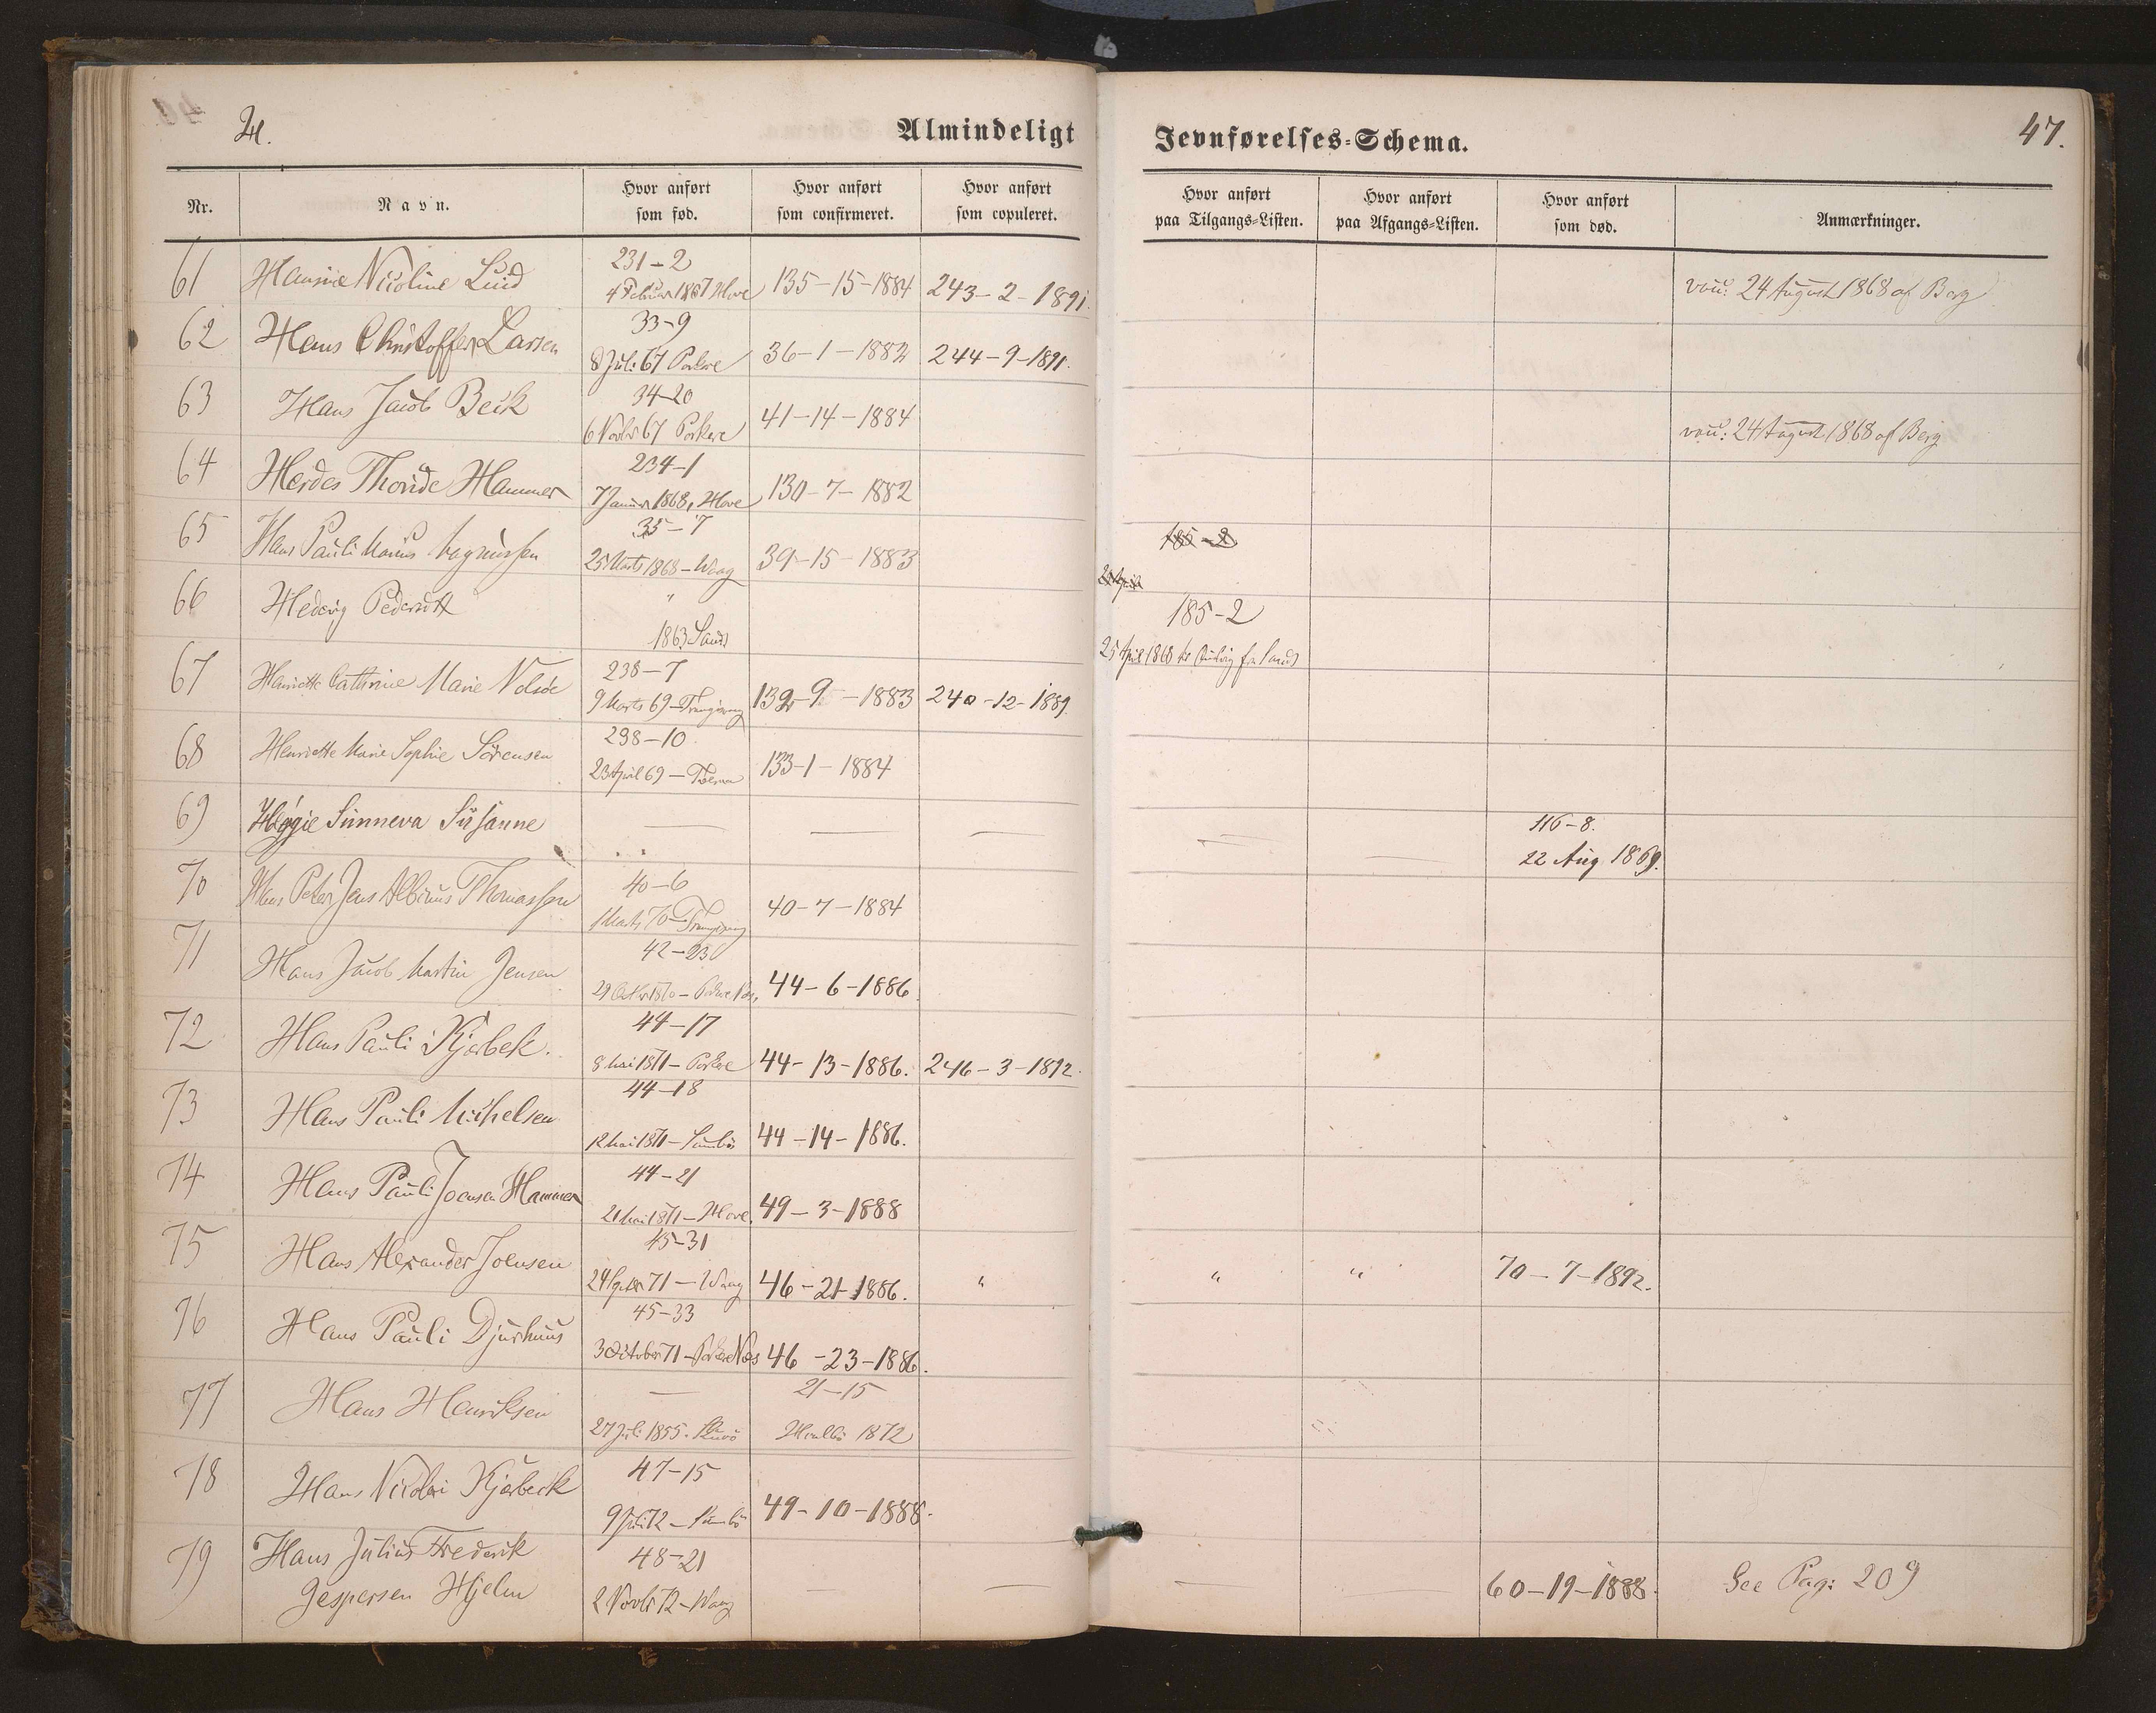 H.
Almindeligt
Jevnførelses-Schema.
47.
Nr.
Navn.
Hvor anført som fød.
Hvor anført som confirmeret.
Hvor anført som copuleret.
Hvor anført paa Tilgangs-Listen.
Hvor anført paa Afgangs-Listen.
Hvor anført som død.
Anmærkninger.
61 Hansine Nicoline Lüd 231-2 135-15-1884 243-2-1891. vac: 24 August 1868 af Berg
4 Februar 1867 Hove
62 Hans Christoffer Larsen 33-9 36-1-1882 244-9-1891.
8 Juli 67 Porkere
63 Hans Jacob Beck 34-20 41-14-1884 vac: 24 August 1868 af Berg
6 Novbr 67 Porkere
64 Herdes Thoride Hammer 234-1 130-7-1882
7 Januar 1868, Hove
65 Hans Pauli Marius Magnussen 35-7 39-15-1883 185-2
25 Marts 1868 - Waag 25 April
66 Hedevig " 185-2
1863 Sand 25 April 1868 fra Sand
67 Henriette Cathrine Marie Nolsøe 238-7 132-9-1883 240-12-1889.
9 Marts 69 - Trangisvaag
68 Henriette Marie Sophie Sørensen 238-10 133-1-1884
23 April 69
69 Heggie Sunneva Susanne — — — — — 116-8.
22 Aug 1869.
70 Hans Peter Jens Albinus Thomassen 40-6 40-7-1884
1 Marts 70 - Trangisvaag
71 Hans Jacob Martin Jensen 42-23 44-6-1886.
29 Octbr 1870 - Porkere Næs
72 Hans Pauli Kjærbek. 44-17 44-13-1886. 246-3-1892.
8 Mai 1871 - Porkere
73 Hans Pauli Michelsen 44-18 44-14-1886.
12 Mai 1871 - Sumbø
74 Hans Pauli Joensen Hammer 44-21 49-3-1888
21 Mai 1871 - Hove
75 Hans Alexander Joensen 45-31 46-21-1886. " " " 70-7-1892.
24 Septbr 71 - Waag
76 Hans Pauli Djurhuus 45-33 46-23-1886.
3 October 71 - Porkere Næs
77 Hans Henriksen — 21-15
27 Juli 1855. Skuø Hvalbø 1872
78 Hans Nicolai Kjærbeck 47-15 49-10-1888.
9 Juli 72 - Sumbø
79 Hans Julius Frederik 48-21 — — — — 60-19-1888. See Pag: 209
Jespersen Hjelm 2 Novbr 72 - Waag